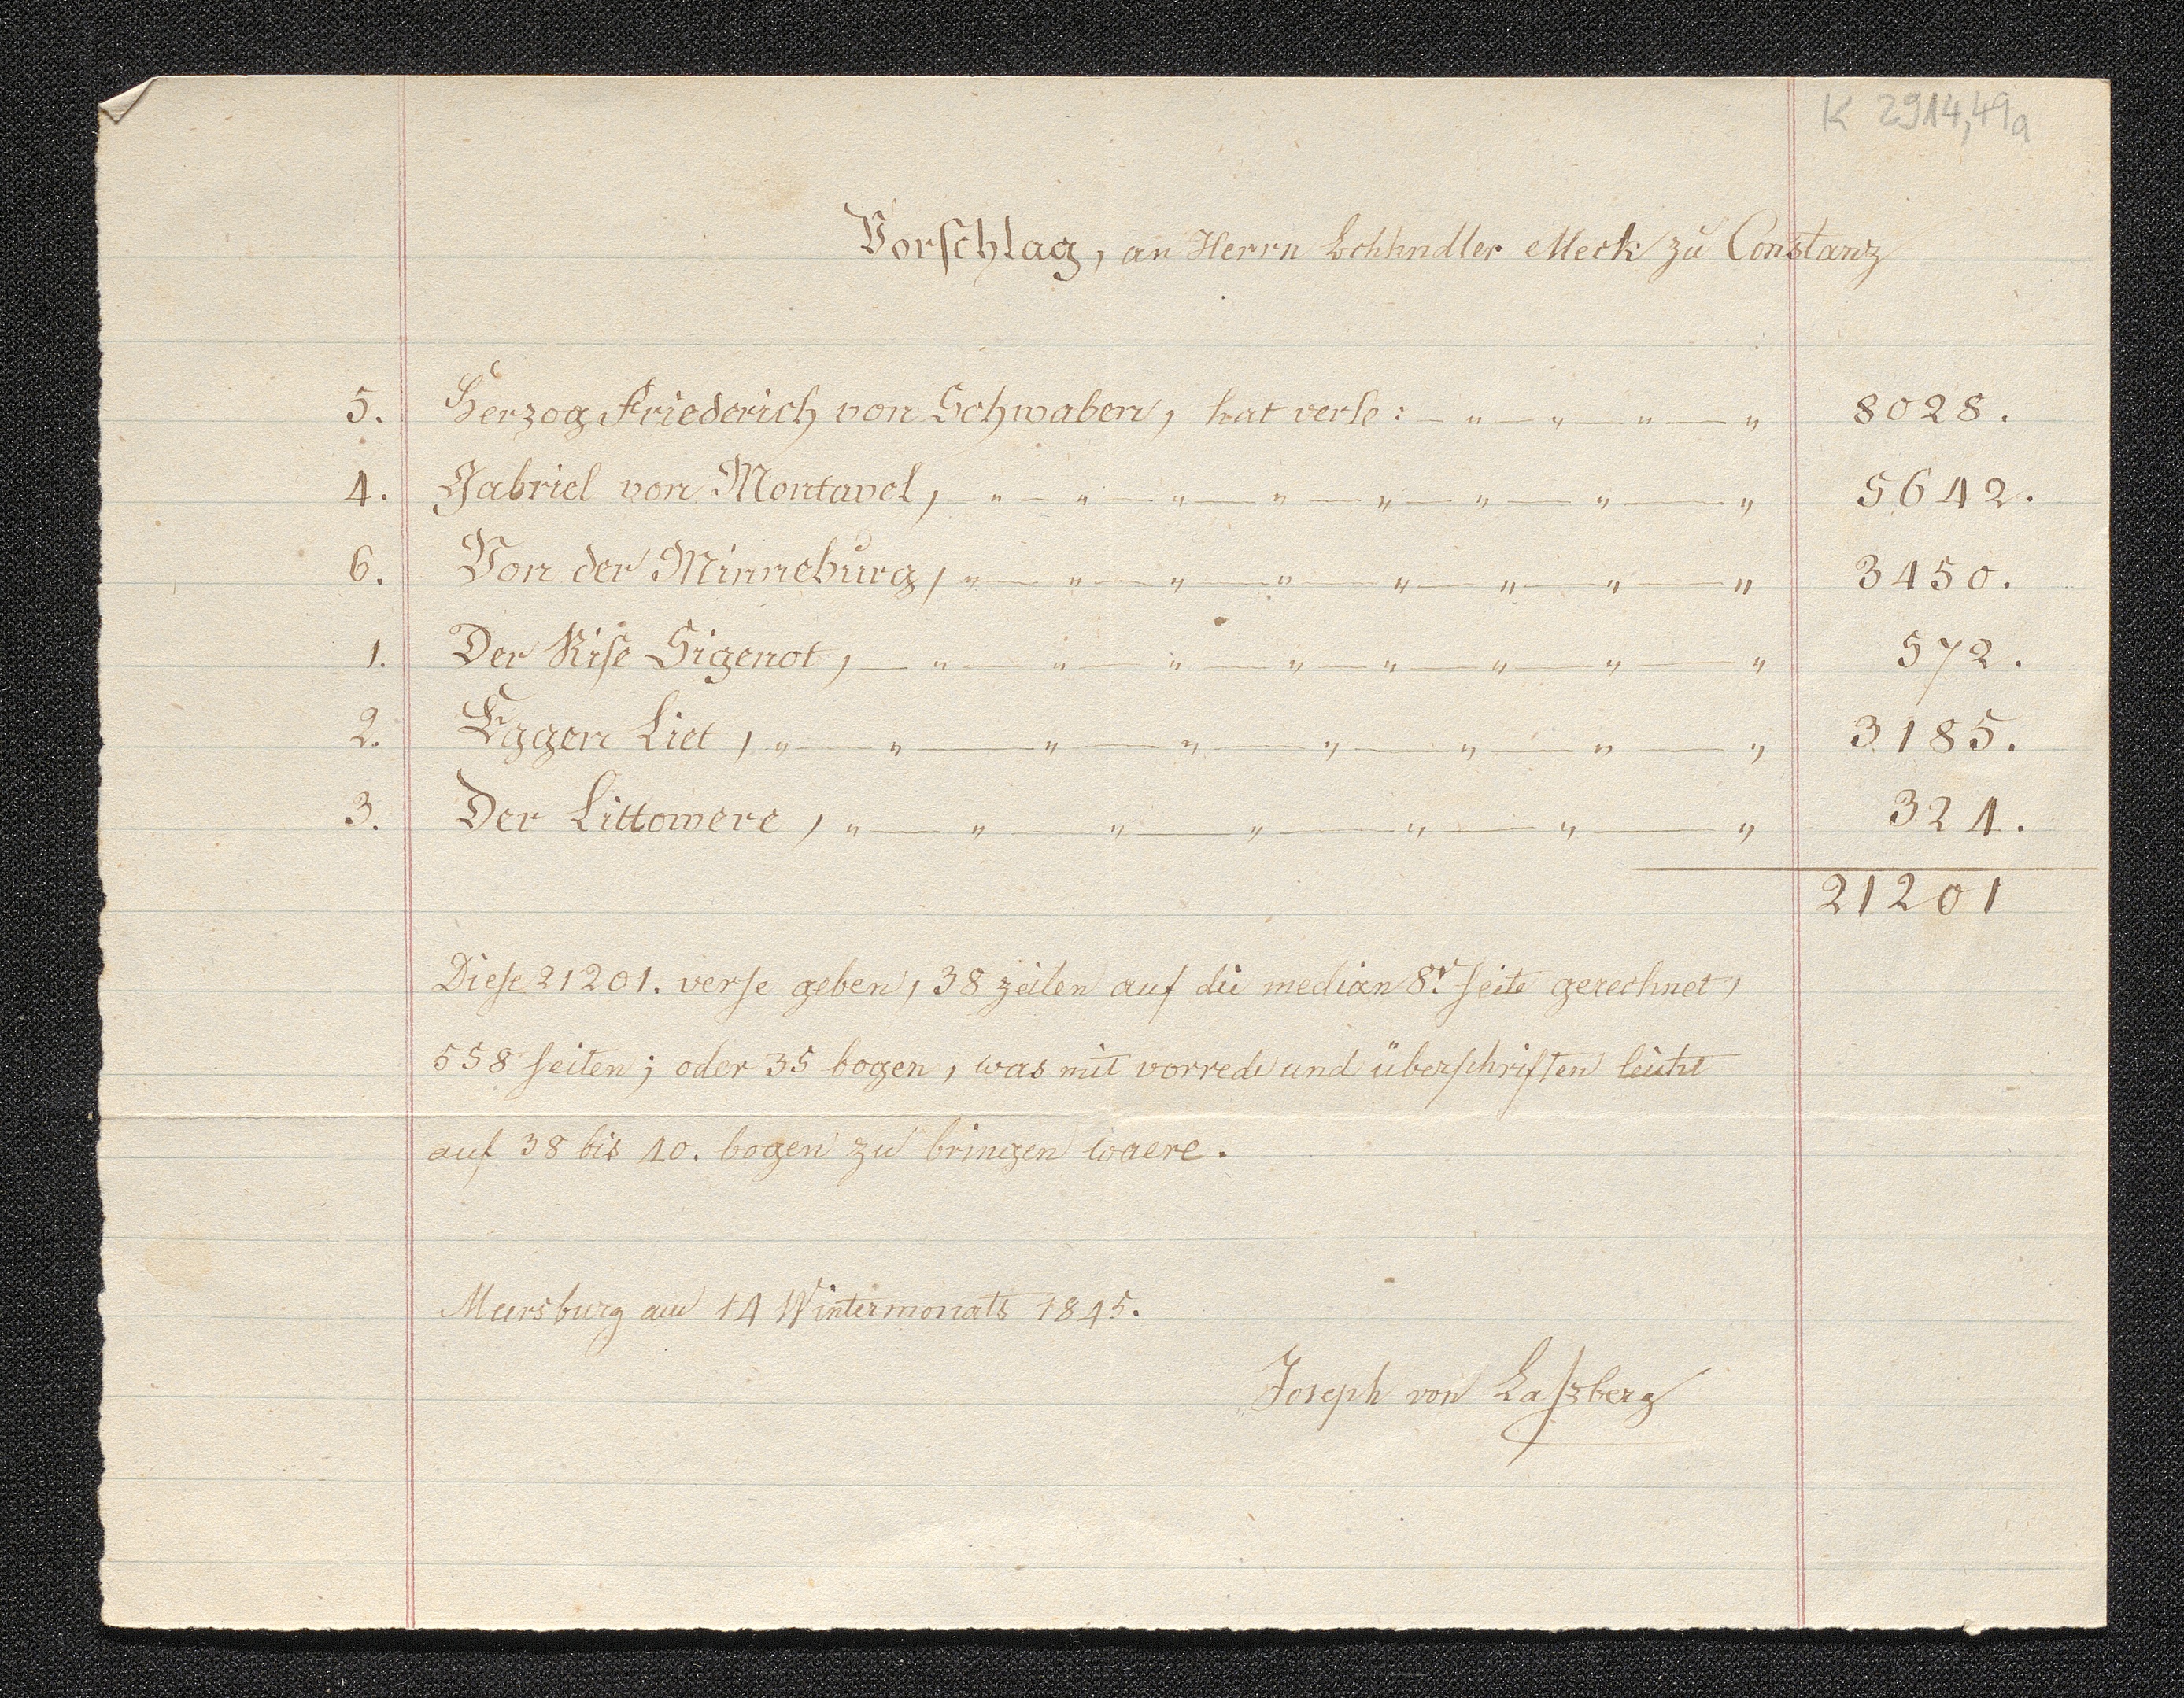 K 2914,49a
Vorschlag, an Herrn Bchhndler Meck zu Constanz
5. Herzog Friederich von Schwaben, hat verse: — „ — „ — „ — „ 8028.
4. Gabriel von Montavel, — „ — „ — „ — „ — „ — „ — „ — „ 5642.
6. Von der Minneburg, „ — „ — „ — „ — „ — „ — „ — „ 3450.
1. Der Rise Sigenot, — „ — „ — „ — „ — „ — „ — „ — „ 572.
2. Eggen Liet, „ — „ — „ — „ — „ — „ — „ — „ 3185.
3. Der Littowere, „ — „ — „ — „ — „ — „ — „ 324.
21201
Diese 21201. verse geben, 38 zeilen auf die median 8v. seite gerechnet,
558 seiten; oder 35 bogen, was mit vorrede und überschriften leicht
auf 38 bis 40. bogen zu bringen waere.
Meersburg am 14 Wintermonats 1845.
Joseph von Laßberg